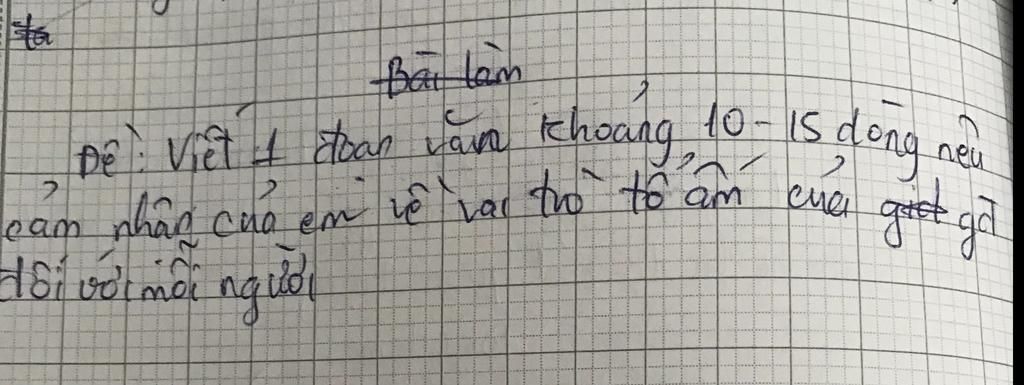 ta
Bài làm
Đề: Viết 1 đoạn văn khoảng 10-15 dòng nêu
cảm nhận của em về vai trò tổ ấm của gđ
đối với mỗi người